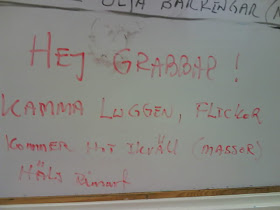 OLJA BARRINGAR
HEJ GRABBAR!
KAMMA LUGGEN, FLICKOR
KOMMER HIT IKVÄLL (MASSOR)
HÄLS